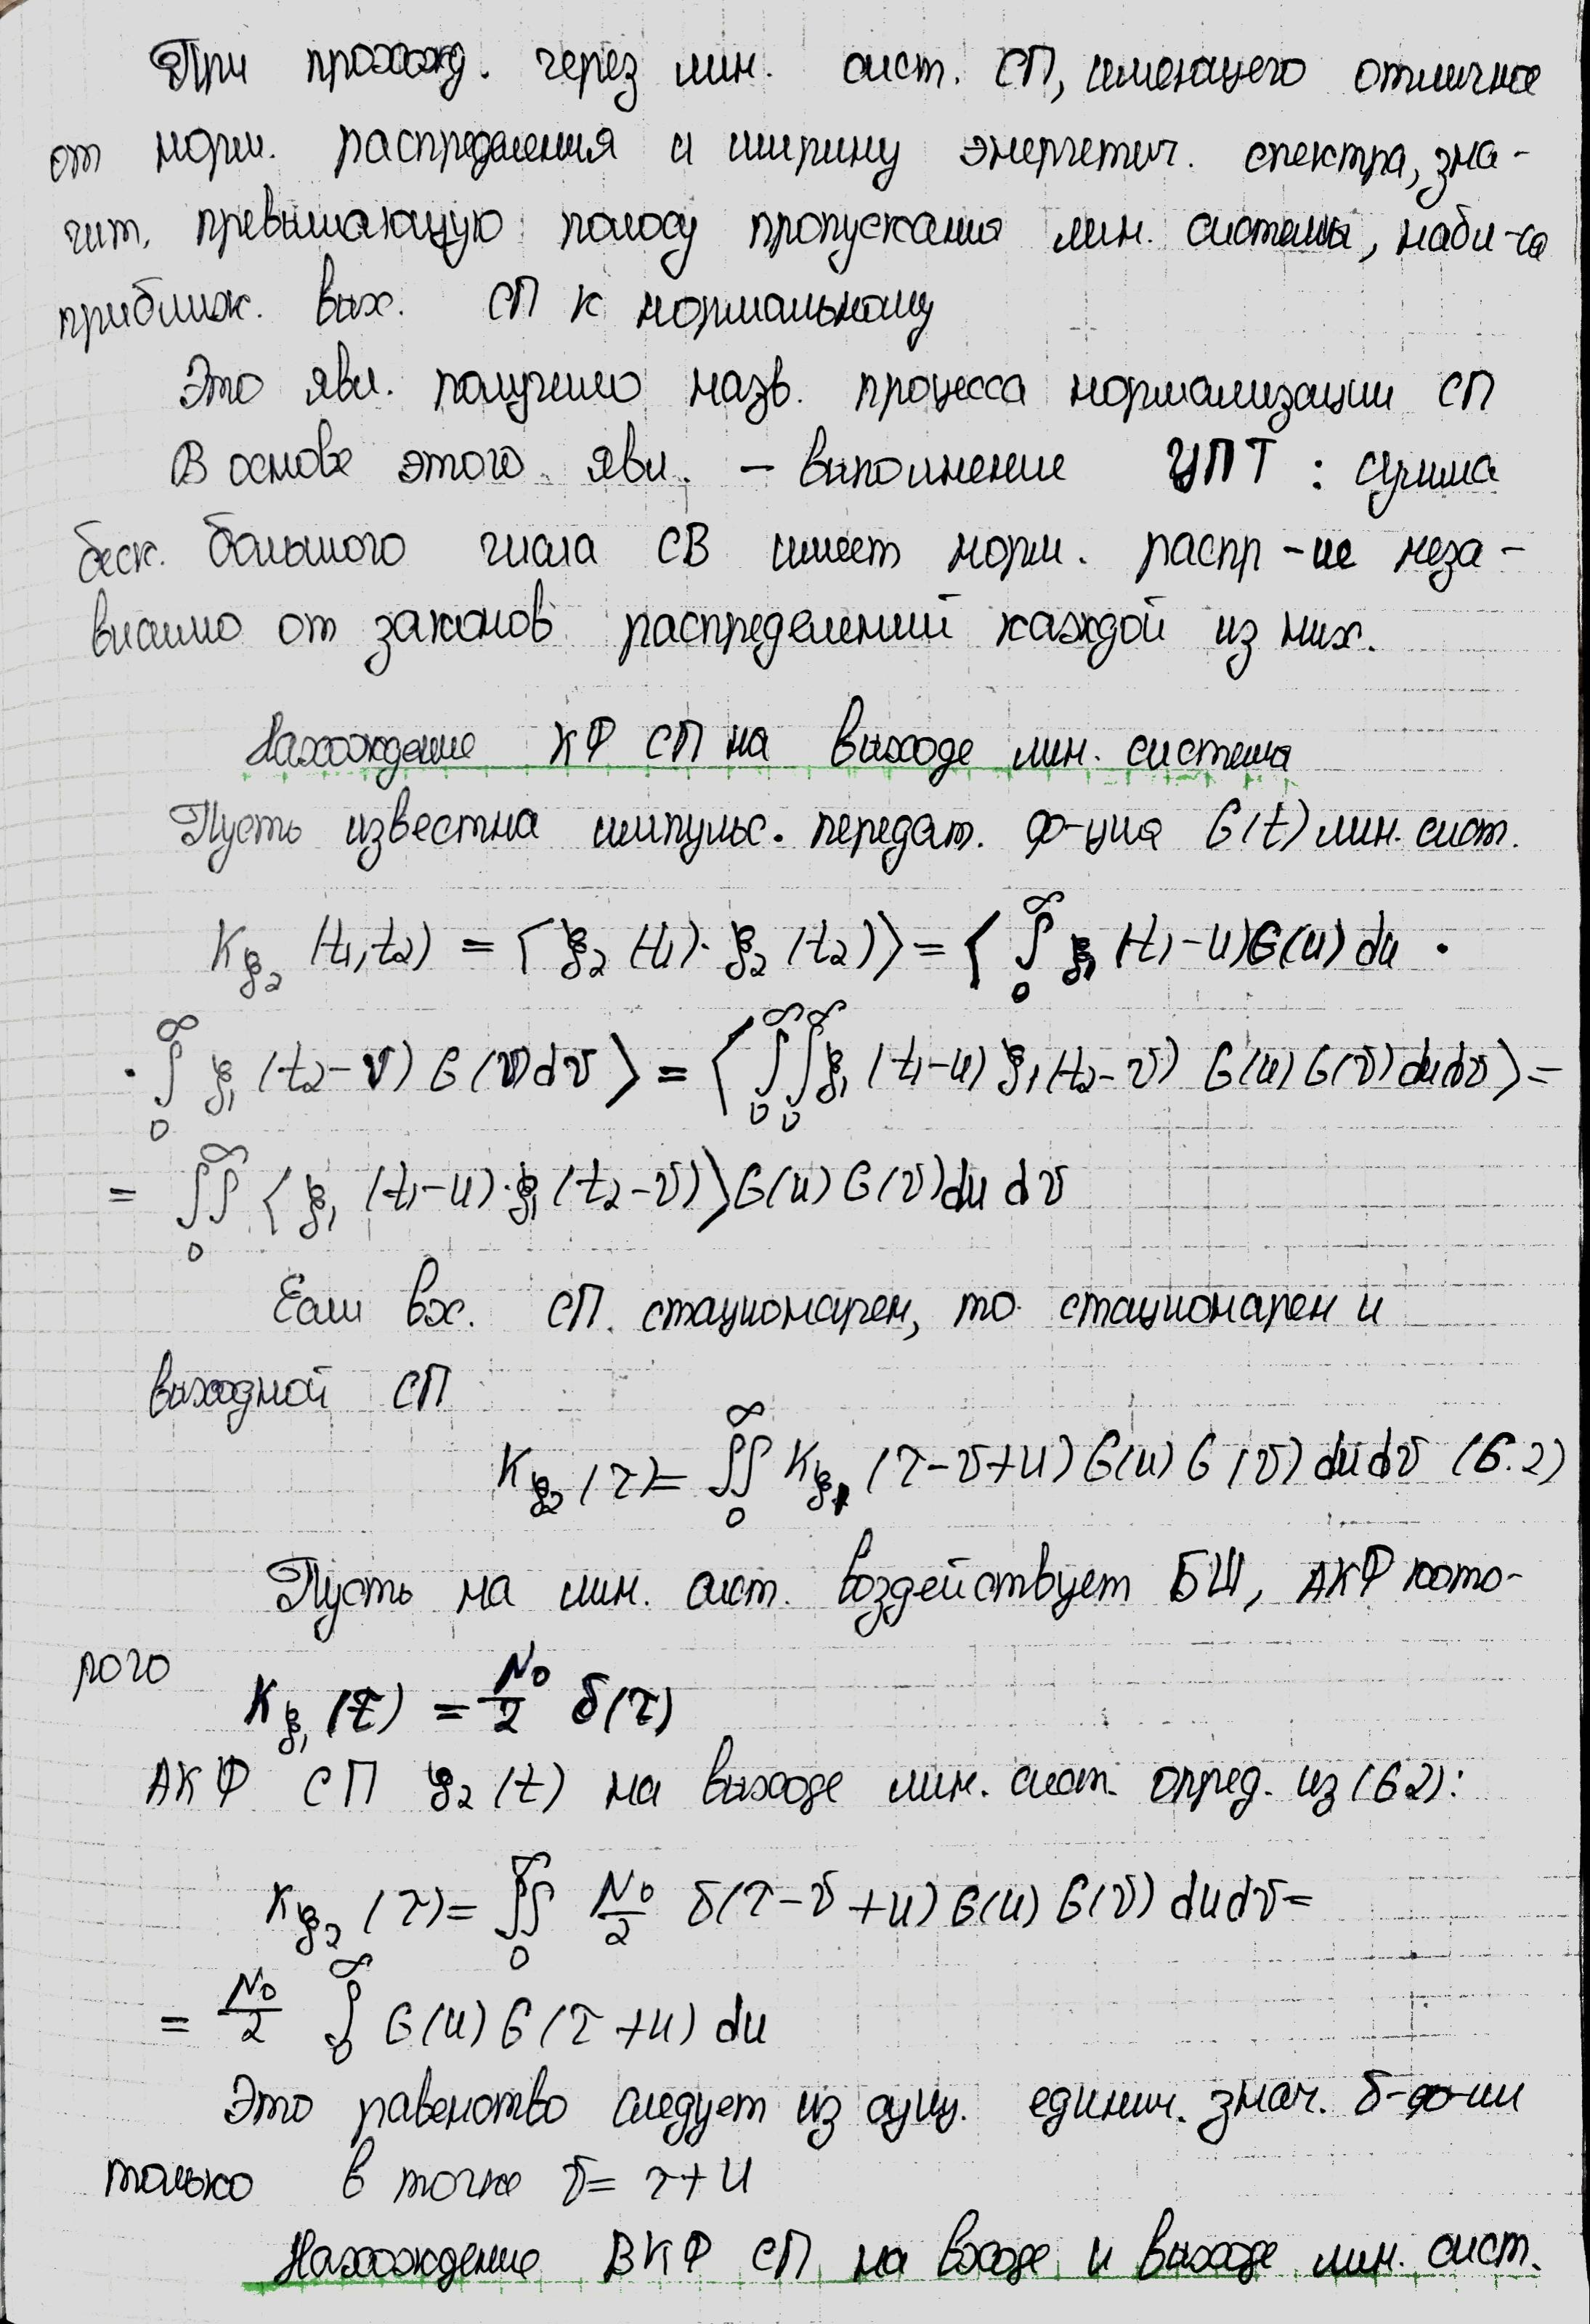 При прохожд. через лин. сист. СП, имеющего отличное
от норм. распределения и ширину энергетич. спектра, зна-
чит. превышающую полосу пропускания лин. системы, набл-ся
приближ. вых. СП к нормальному
Это явл. получило назв. процесса нормализации СП
В основе этого явл. – выполнение ЦПТ : сумма
беск. большого числа СВ имеет норм. распр-ие неза-
висимо от законов распределений каждой из них.
Нахождение КФ СП на выходе лин. система
Пусть известна импульс. передат. ф-ция G(t) лин. сист.
K_ξ₂ (t₁,t₂) = ⟨ξ₂(t₁)·ξ₂(t₂)⟩ = ⟨ ∫₀^∞ ξ₁(t₁-u)G(u)du ·
· ∫₀^∞ ξ₁(t₂-v)G(v)dv ⟩ = ⟨ ∫₀^∞∫₀^∞ ξ₁(t₁-u)ξ₁(t₂-v) G(u)G(v)dudv⟩ =
= ∬₀^∞ ⟨ξ₁(t₁-u)·ξ₁(t₂-v)⟩G(u)G(v)du dv
Если вх. СП. стационарен, то стационарен и
выходной СП
K_ξ₂(τ) = ∬₀^∞ K_ξ₁(τ-v+u)G(u)G(v)dudv (6.2)
Пусть на лин. сист. воздействует БШ, АКФ кото-
рого
K_ξ₁(τ) = N₀/2 δ(τ)
АКФ СП ξ₂(t) на выходе лин. сист. опред. из (6.2):
K_ξ₂(τ) = ∬₀^∞ N₀/2 δ(τ-v+u)G(u)G(v)dudv =
= N₀/2 ∫₀^∞ G(u)G(τ+u)du
Это равенство следует из сущ. единич. знач. δ-ф-ии
только в точке v = τ+u
Нахождение ВКФ СП на входе и выходе лин. сист.